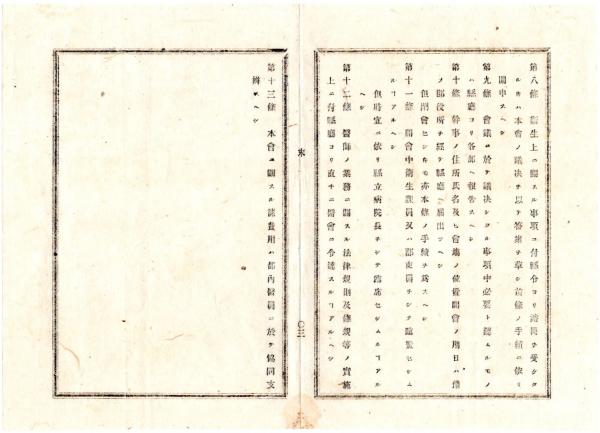 第八條 衞生上ニ關スル事項ニ付縣令ヨリ諮問ヲ受シタ
ルトキハ本會ノ議决ヲ以テ答案ヲ草シ前條ノ手續ニ依リ
開申スヘシ
第九條 會議ニ於テ議决シタル事項中必要ト認ムルモノ
ハ縣廳ヨリ各郡ヘ報告スヘシ
第十條 幹事ノ住所氏名及ヒ會塲ノ位置開會ノ期日ハ豫
メ郡役所ヲ經テ縣廳ヘ屆出ツヘシ
但閉會セシトキモ亦本條ノ手續ヲ爲スヘシ
第十一條 開會中衞生課員又ハ郡吏員ヲシテ臨監セシム
ルヿアルヘシ
但時宜ニ依リ縣立病院長ヲシテ臨席セシムルヿアル
ヘシ
第十二條 醫師ノ業務ニ關スル法律規則及條規等ノ實施
上ニ付縣廳ヨリ直チニ醫會ニ令達スルヿアルヘシ
第十三條 本會ニ關スル諸費用ハ郡內醫員ニ於テ協同支
辨スヘシ
〇三